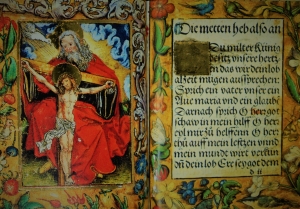 Die metten heb also an
Du milter künig
besitz unser hertz
en das wir dein lob
alzeit mügen aussprechen
Sprich ein vater unser ein
Aue maria und ein glaubē
Darnach sprich O her got
schaw in mein hilf O her
eyl mir zu helffenn O her
thu auff mein lefftzen unnd
mein mundt wirt verkün
dē dein lob Er sey got dem